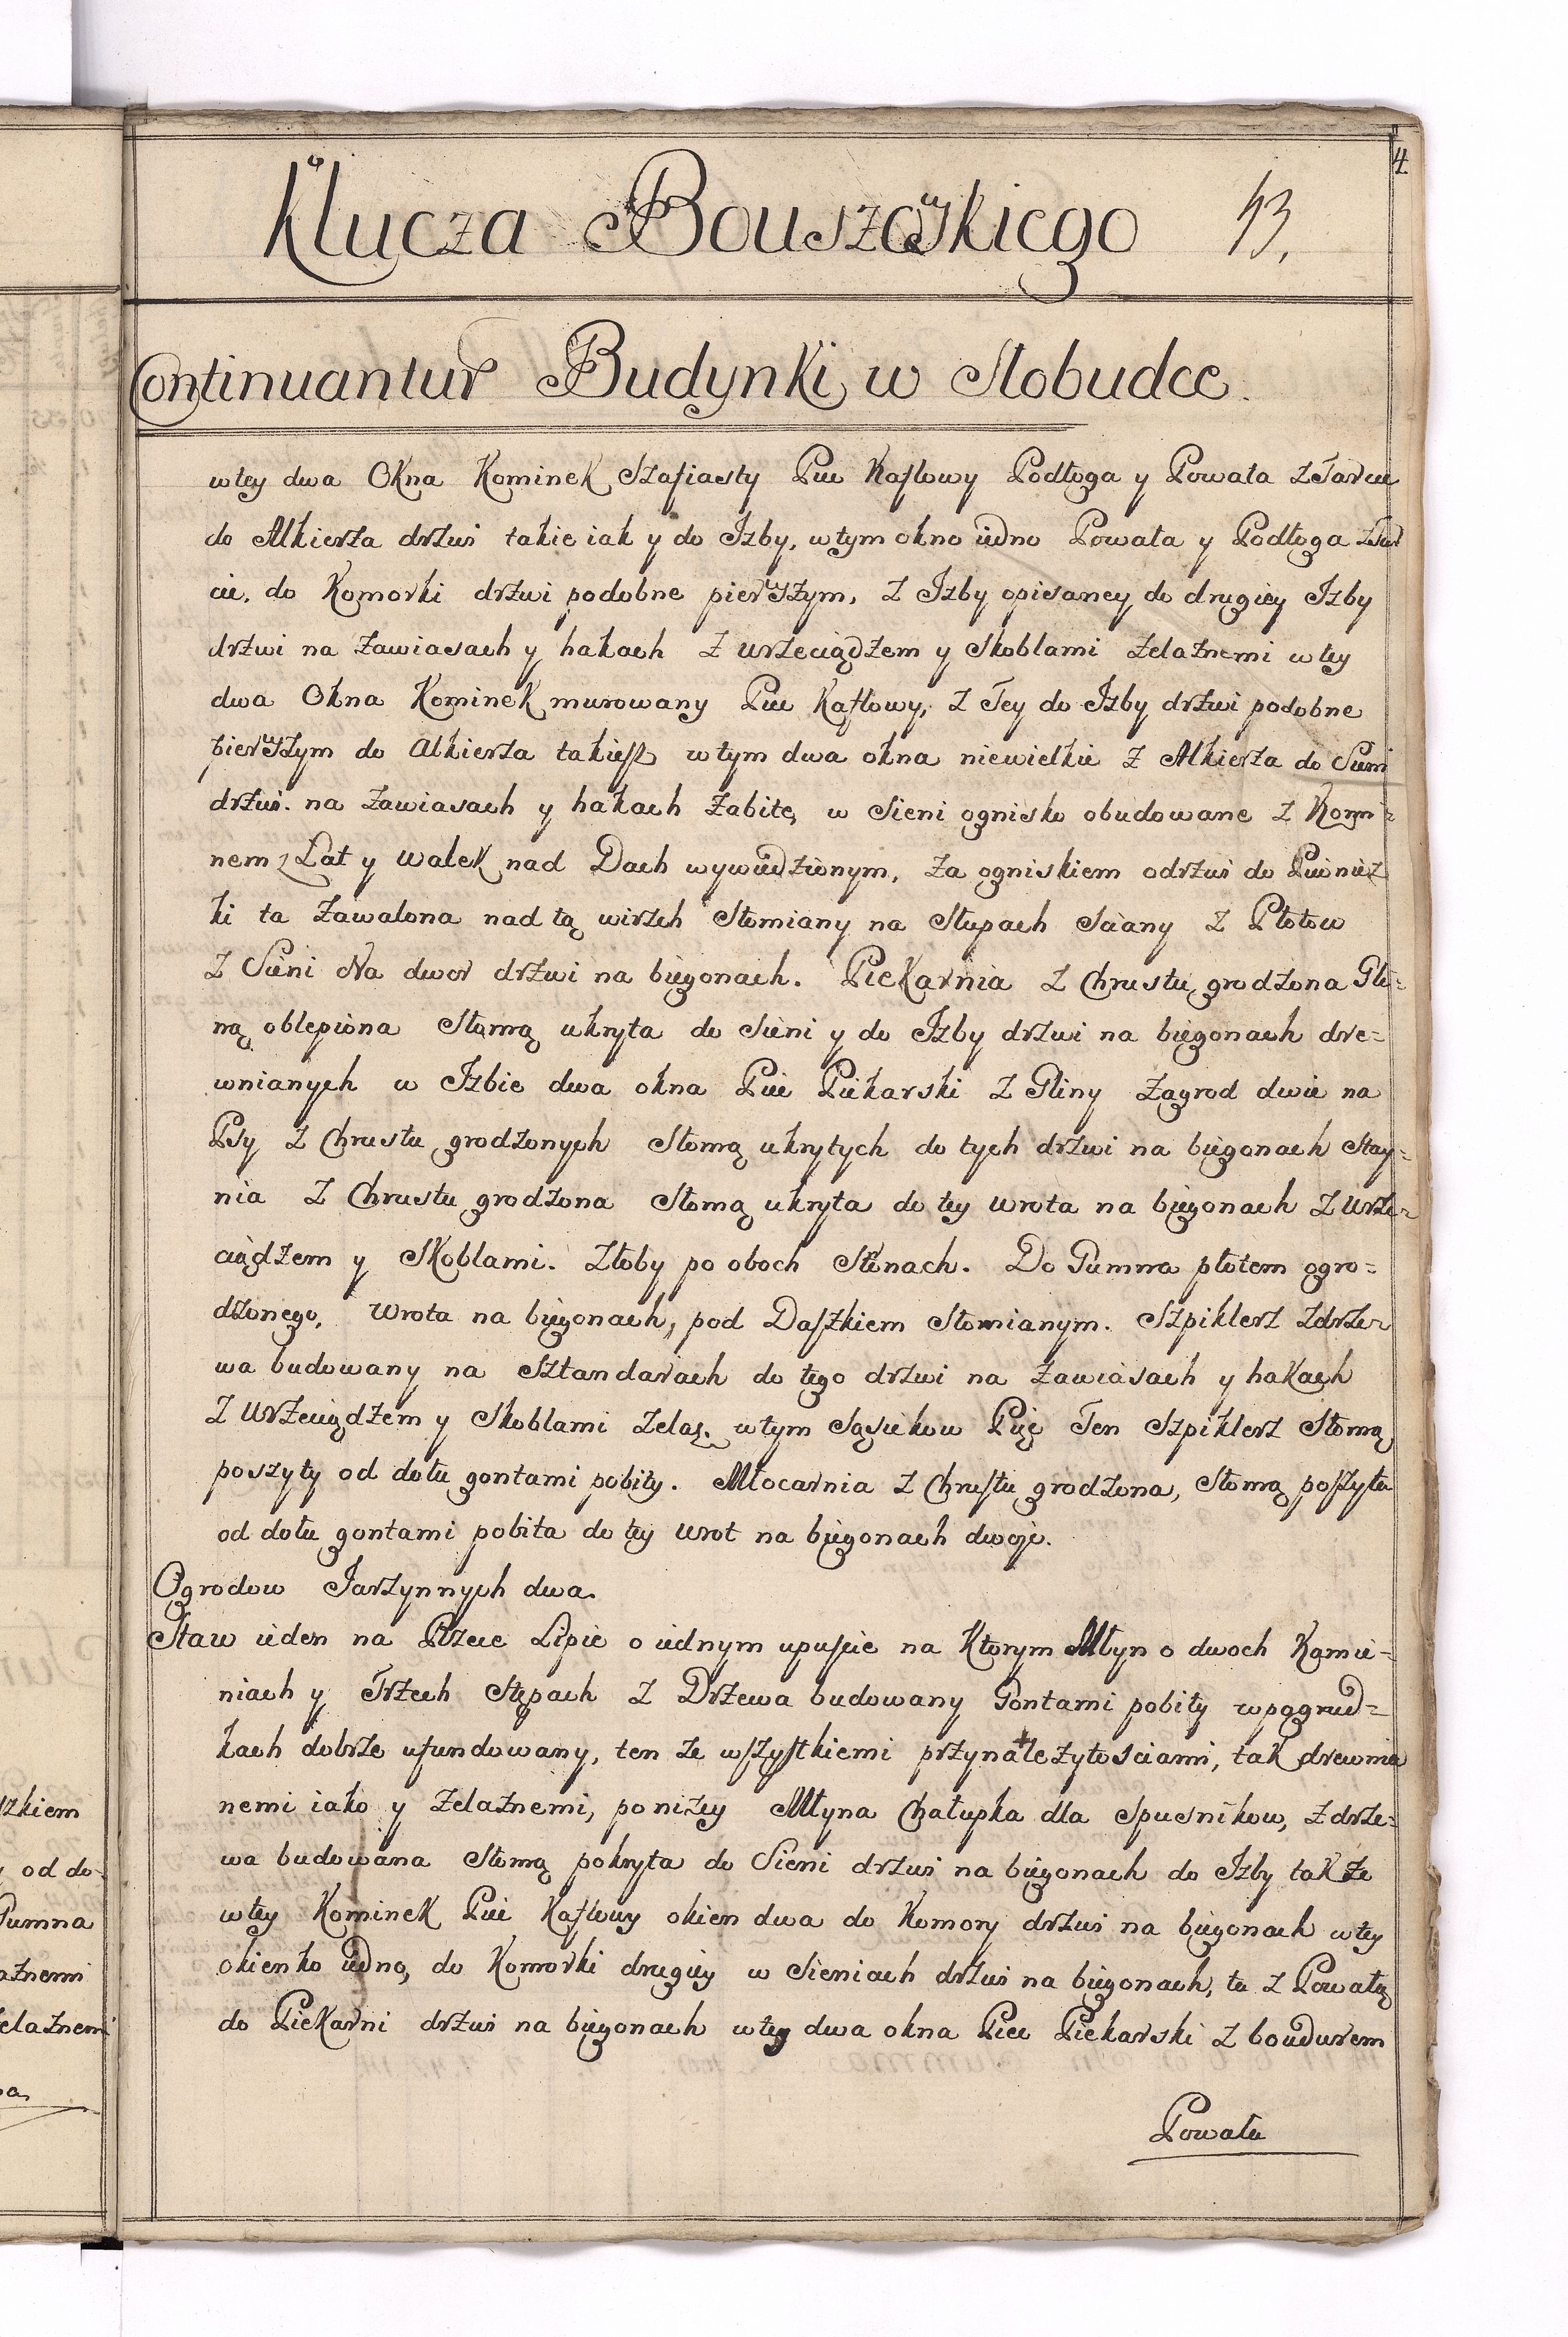 4.
Klucza Bouszowskiego 43.
Continuantur Budynki w Słobudce.
w tey dwa Okna Kominek Szafiasty Piec Kaflowy Podłoga y Powała z Tarcic
do Alkierza drzwi takie iak y do Izby, w tym okno iedno Powała y Podłoga z Tar
cic. do Komorki drzwi podobne pierwszym, z Izby opisaney do drugiey Izby
drzwi na Zawiasach y hakach z wrzeciądzem y Skoblami Zelaznemi w tey
dwa Okna Kominek murowany Piec Kaflowy, z Tey do Izby drzwi podobne
pierwszym do Alkierza takiesz w tym dwa okna niewielkie z Alkierza do Sieni
drzwi na Zawiasach y hakach Zabite, w Sieni ognisko obudowane z Komi=
nem z Łat y Walek nad Dach wywiedzionym, Za ogniskiem odrzwi do Piwnicz
ki ta Zawalona nad tą wirzch Słomiany na Słupach Sciany z Płotow
z Sieni Na dwor drzwi na biegonach. Piekarnia z Chrustu grodzona Gli=
ną oblepiona Słomą ukryta do Sieni y do Izby drzwi na biegonach dre=
wnianych w Izbie dwa okna Piec Piekarski z Gliny Zagrod dwie na
Psy z Chrustu grodzonych Słomą ukrytych do tych drzwi na biegonach Stay=
nia z Chrustu grodzona Słomą ukryta do tey wrota na biegonach z wrze=
ciądzem y Skoblami. Złoby po oboch Stronach. Do Gumna płotem ogro=
dzonego, Wrota na biegonach, pod Daszkiem Słomianym. Szpiklerz z drze=
wa budowany na Sztandarach do tego drzwi na Zawiasach y hakach
z Wrzeciądzem y Skoblami Zelaz. w tym Sąsiekow Pięć Ten Szpiklerz Słomą
poszyty od dołu gontami pobity. Młocarnia z Chrustu grodzona, Słomą poszyta
od dołu gontami pobita do tey wrot na biegonach dwoje.
Ogrodow Jarzynnych dwa.
Staw ieden na Rzece Lipie o iednym upuście na Ktorym Młyn o dwoch Kamie=
niach y Trzech Stępach z Drzewa budowany Gontami pobity w pogrud=
kach dobrze ufundowany, ten ze wszystkiemi przynależytościami, tak drewnia
nemi iako y Zelaznemi, poniżey Młyna Chałupka dla Spusnikow, z drze=
wa budowana Słomą pokryta do Sieni drzwi na biegonach do Izby takze
w tey Kominek Piec Kaflowy okien dwa do Komory drzwi na biegonach w tey
okienko iedno, do Komorki drugiey w Sieniach drzwi na biegonach, ta z Powałą
do Piekarni drzwi na biegonach w tey dwa okna Piec Piekarski z boudurem
Powała
szkiem
y od do=
Gumna
aznemi
elaznemi